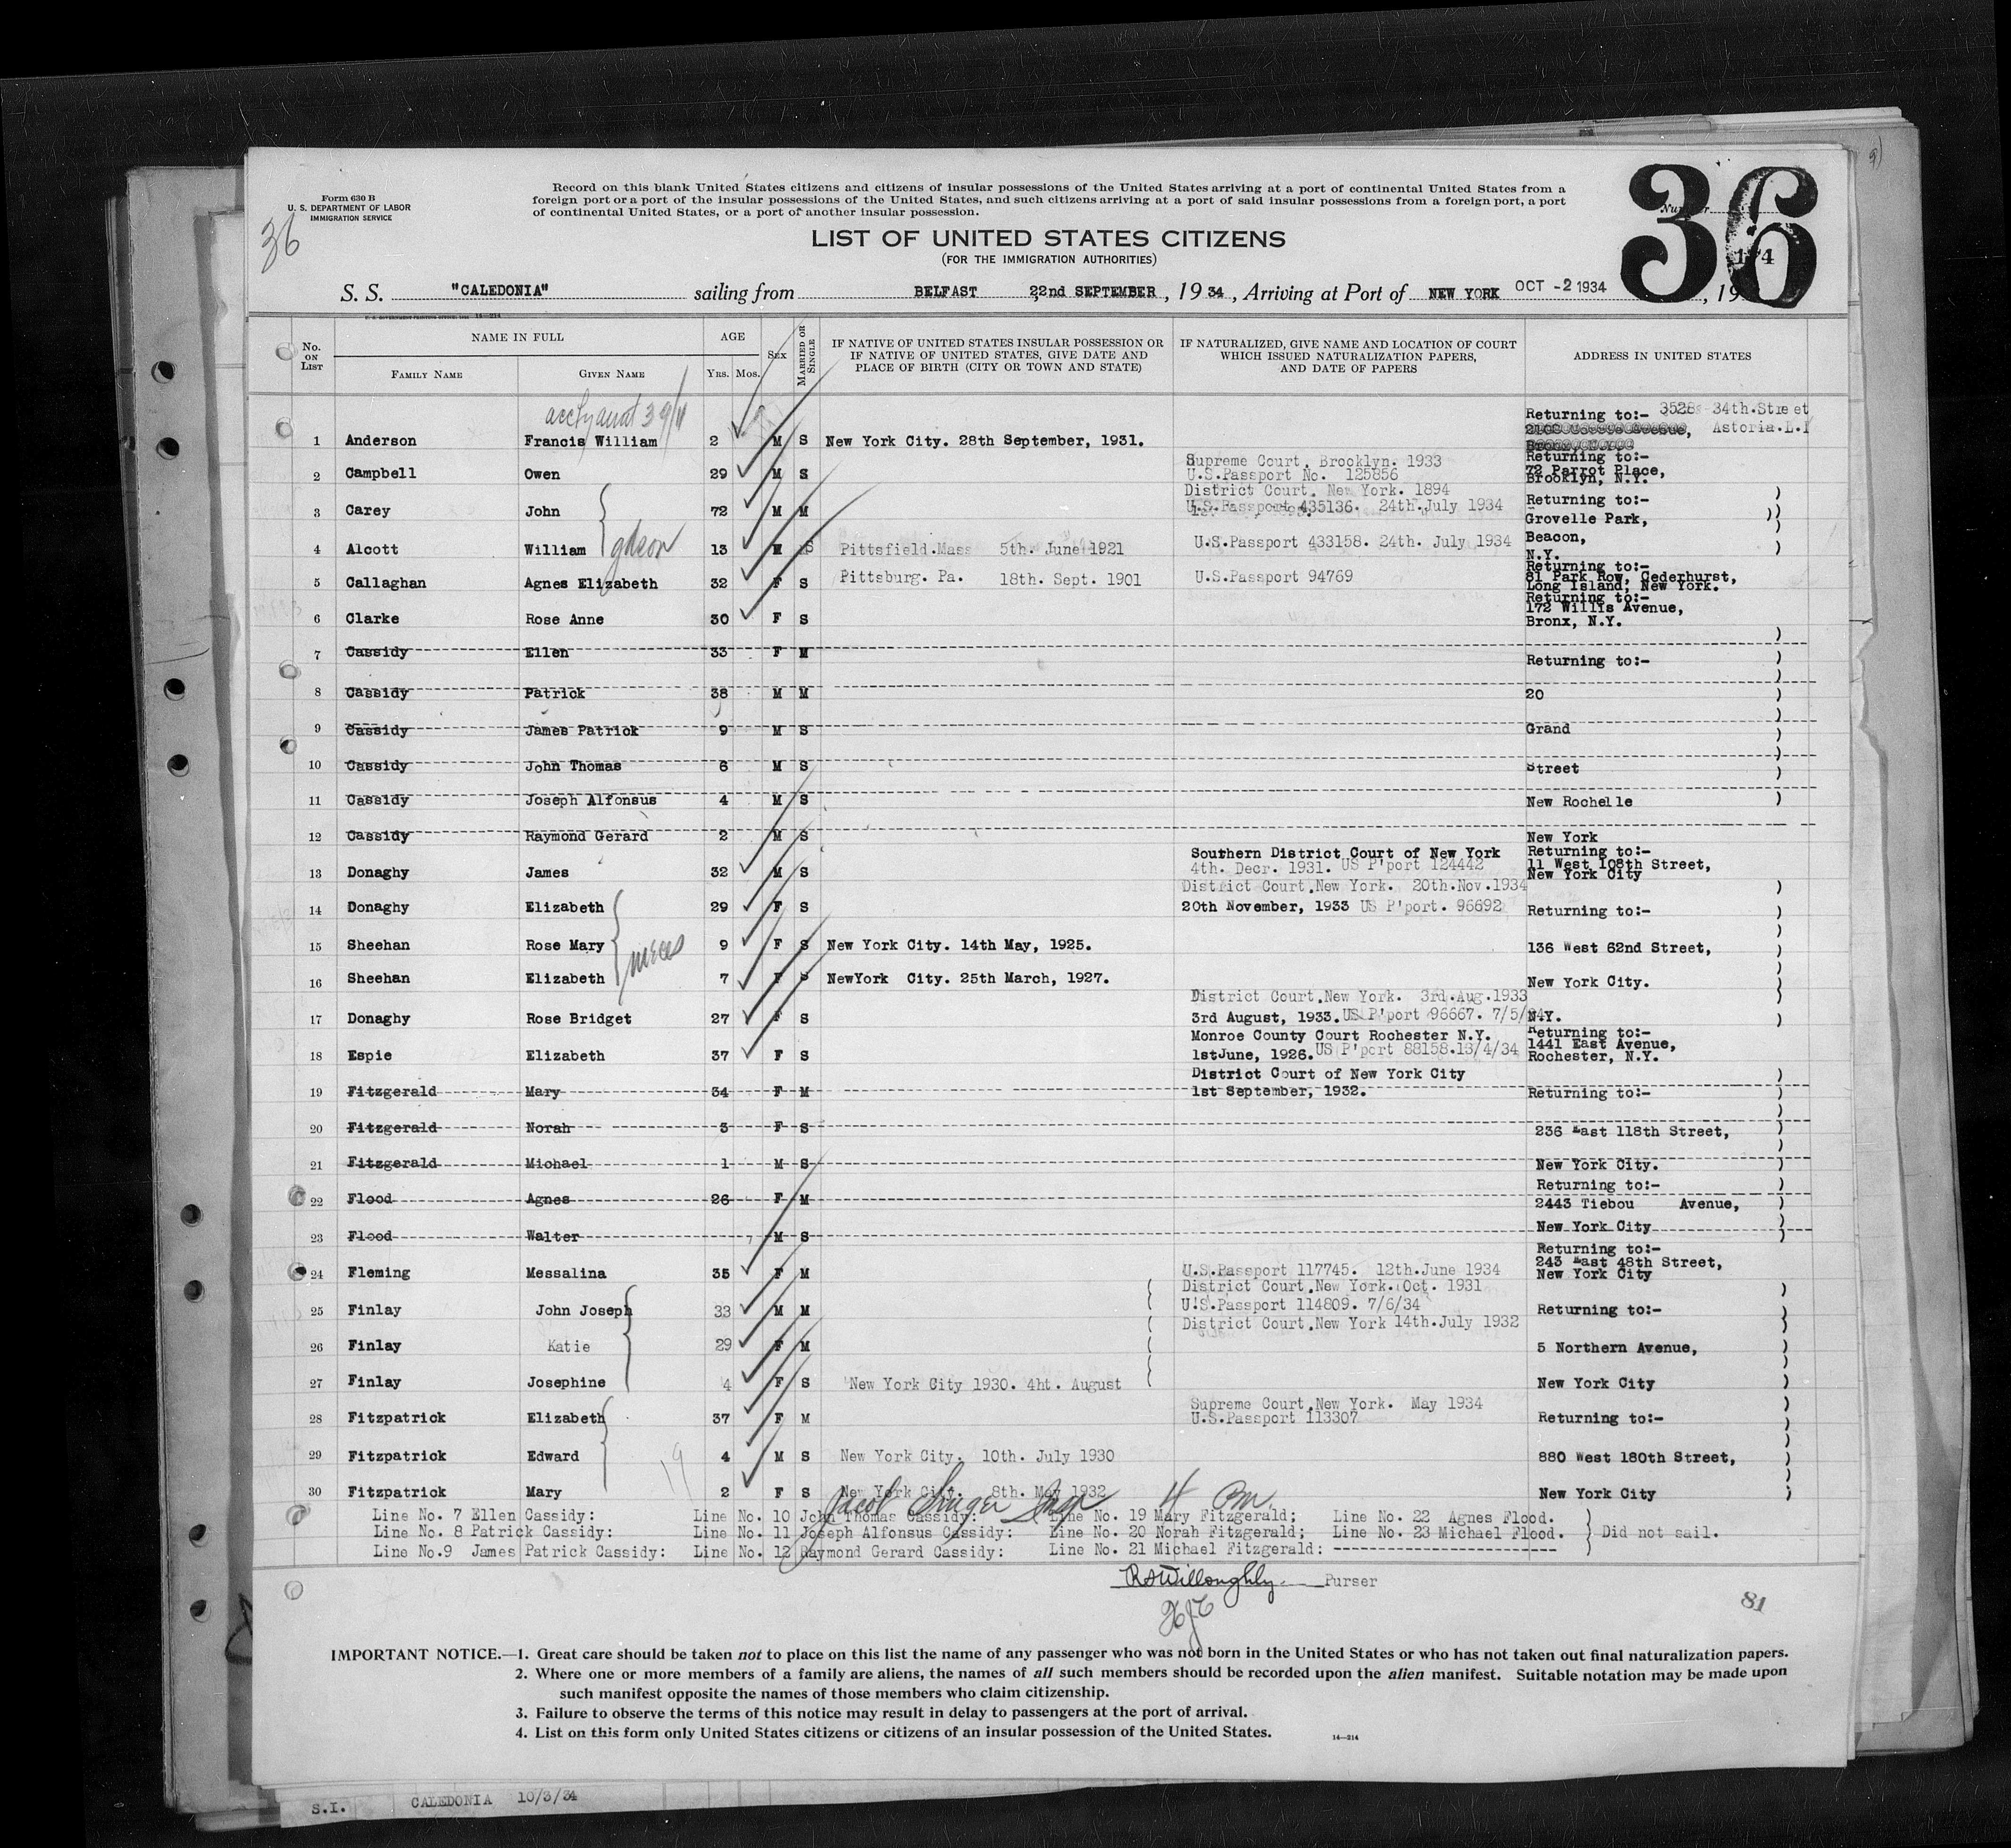 Form 630 B
U. S. DEPARTMENT OF LABOR
IMMIGRATION SERVICE
36
Record on this blank United States citizens and citizens of insular possessions of the United States arriving at a port of continental United States from a
foreign port or a port of the insular possessions of the United States, and such citizens arriving at a port of said insular possessions from a foreign port, a port
of continental United States, or a port of another insular possession.
36
LIST OF UNITED STATES CITIZENS
(FOR THE IMMIGRATION AUTHORITIES)
S. S. "CALEDONIA" sailing from BELFAST 22nd SEPTEMBER, 1934, Arriving at Port of NEW YORK OCT -2 1934, 19
No. ON LIST
NAME IN FULL
FAMILY NAME
GIVEN NAME
AGE
YRS. MOS.
SEX
MARRIED OR SINGLE
IF NATIVE OF UNITED STATES INSULAR POSSESSION OR
IF NATIVE OF UNITED STATES, GIVE DATE AND
PLACE OF BIRTH (CITY OR TOWN AND STATE)
IF NATURALIZED, GIVE NAME AND LOCATION OF COURT
WHICH ISSUED NATURALIZATION PAPERS,
AND DATE OF PAPERS
ADDRESS IN UNITED STATES
Returning to:- 3528 34th.Street
1 Anderson Francis William 2 M S New York City. 28th September, 1931. Astoria.L.I
2 Campbell Owen 29 M S Supreme Court. Brooklyn. 1933
U.S.Passport No. 125856
Returning to:-
72 Parrot Place,
Brooklyn, N.Y.
3 Carey John 72 M M District Court. New York. 1894
U.S.Passport 435136. 24th.July 1934
Returning to:-
Grovelle Park,
4 Alcott William 13 M S Pittsfield.Mass 5th. June 1921 U.S.Passport 433158. 24th. July 1934 Beacon,
N.Y.
5 Callaghan Agnes Elizabeth 32 F S Pittsburg. Pa. 18th. Sept. 1901 U.S.Passport 94769
Returning to:-
81 Park Row, Cederhurst,
Long Island, New York.
6 Clarke Rose Anne 30 F S
Returning to:-
172 Willis Avenue,
Bronx, N.Y.
7 Cassidy Ellen 33 F M Returning to:-
8 Cassidy Patrick 38 M M 20
9 Cassidy James Patrick 9 M S Grand
10 Cassidy John Thomas 6 M S Street
11 Cassidy Joseph Alfonsus 4 M S New Rochelle
12 Cassidy Raymond Gerard 2 M S New York
13 Donaghy James 32 M S Southern District Court of New York
4th. Decr. 1931. US P'port 124442
Returning to:-
11 West 108th Street,
New York City
14 Donaghy Elizabeth 29 F S District Court.New York. 20th.Nov.1934
20th November, 1933 US P'port. 96692 Returning to:-
nieces
15 Sheehan Rose Mary 9 F S New York City. 14th May, 1925. 136 West 62nd Street,
16 Sheehan Elizabeth 7 F S NewYork City. 25th March, 1927. New York City.
17 Donaghy Rose Bridget 27 F S District Court.New York. 3rd.Aug.1933
3rd August, 1933. US P'port 96667. 7/5/34 N.Y.
18 Espie Elizabeth 37 F S Monroe County Court Rochester N.Y.
1stJune, 1926. US P'port 88158.13/4/34
Returning to:-
1441 East Avenue,
Rochester, N.Y.
19 Fitzgerald Mary 34 F M District Court of New York City
1st September, 1932. Returning to:-
20 Fitzgerald Norah 3 F S 236 East 118th Street,
21 Fitzgerald Michael 1 M S New York City.
22 Flood Agnes 26 F M Returning to:-
2443 Tiebou Avenue,
23 Flood Walter M S New York City
24 Fleming Messalina 35 F M U.S.Passport 117745. 12th.June 1934
Returning to:-
243 East 48th Street,
New York City
25 Finlay John Joseph 33 M M District Court.New York. Oct. 1931
U.S.Passport 114809. 7/6/34 Returning to:-
26 Finlay Katie 29 F M District Court.New York 14th.July 1932 5 Northern Avenue,
27 Finlay Josephine 4 F S New York City 1930. 4ht. August New York City
28 Fitzpatrick Elizabeth 37 F M Supreme Court.New York. May 1934
U.S.Passport 113307 Returning to:-
29 Fitzpatrick Edward 4 M S New York City. 10th. July 1930 880 West 180th Street,
30 Fitzpatrick Mary 2 F S New York City. 8th. May 1932 New York City
Jacob Singer Insp
Line No. 7 Ellen Cassidy: Line No. 10 John Thomas Cassidy: Line No. 19 Mary Fitzgerald; Line No. 22 Agnes Flood.
Line No. 8 Patrick Cassidy: Line No. 11 Joseph Alfonsus Cassidy: Line No. 20 Norah Fitzgerald; Line No. 23 Michael Flood. Did not sail.
Line No.9 James Patrick Cassidy: Line No. 12 Raymond Gerard Cassidy: Line No. 21 Michael Fitzgerald: -----------------------
RSWilloughby Purser
81
IMPORTANT NOTICE.—1. Great care should be taken not to place on this list the name of any passenger who was not born in the United States or who has not taken out final naturalization papers.
2. Where one or more members of a family are aliens, the names of all such members should be recorded upon the alien manifest. Suitable notation may be made upon
such manifest opposite the names of those members who claim citizenship.
3. Failure to observe the terms of this notice may result in delay to passengers at the port of arrival.
4. List on this form only United States citizens or citizens of an insular possession of the United States.
14—214
S.I. CALEDONIA 10/3/34